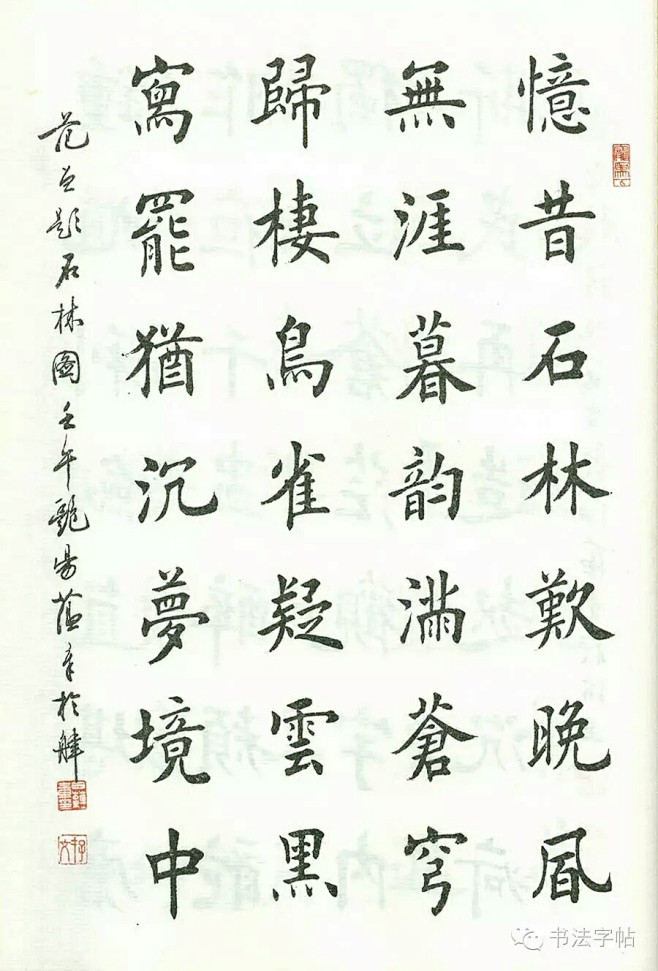 憶昔石林歎晚風
無涯暮韵滿蒼穹
歸棲鳥雀疑雲黑
寫罷猶沉夢境中
范曾题石林圖壬午艷陽蕴章於津
书法字帖